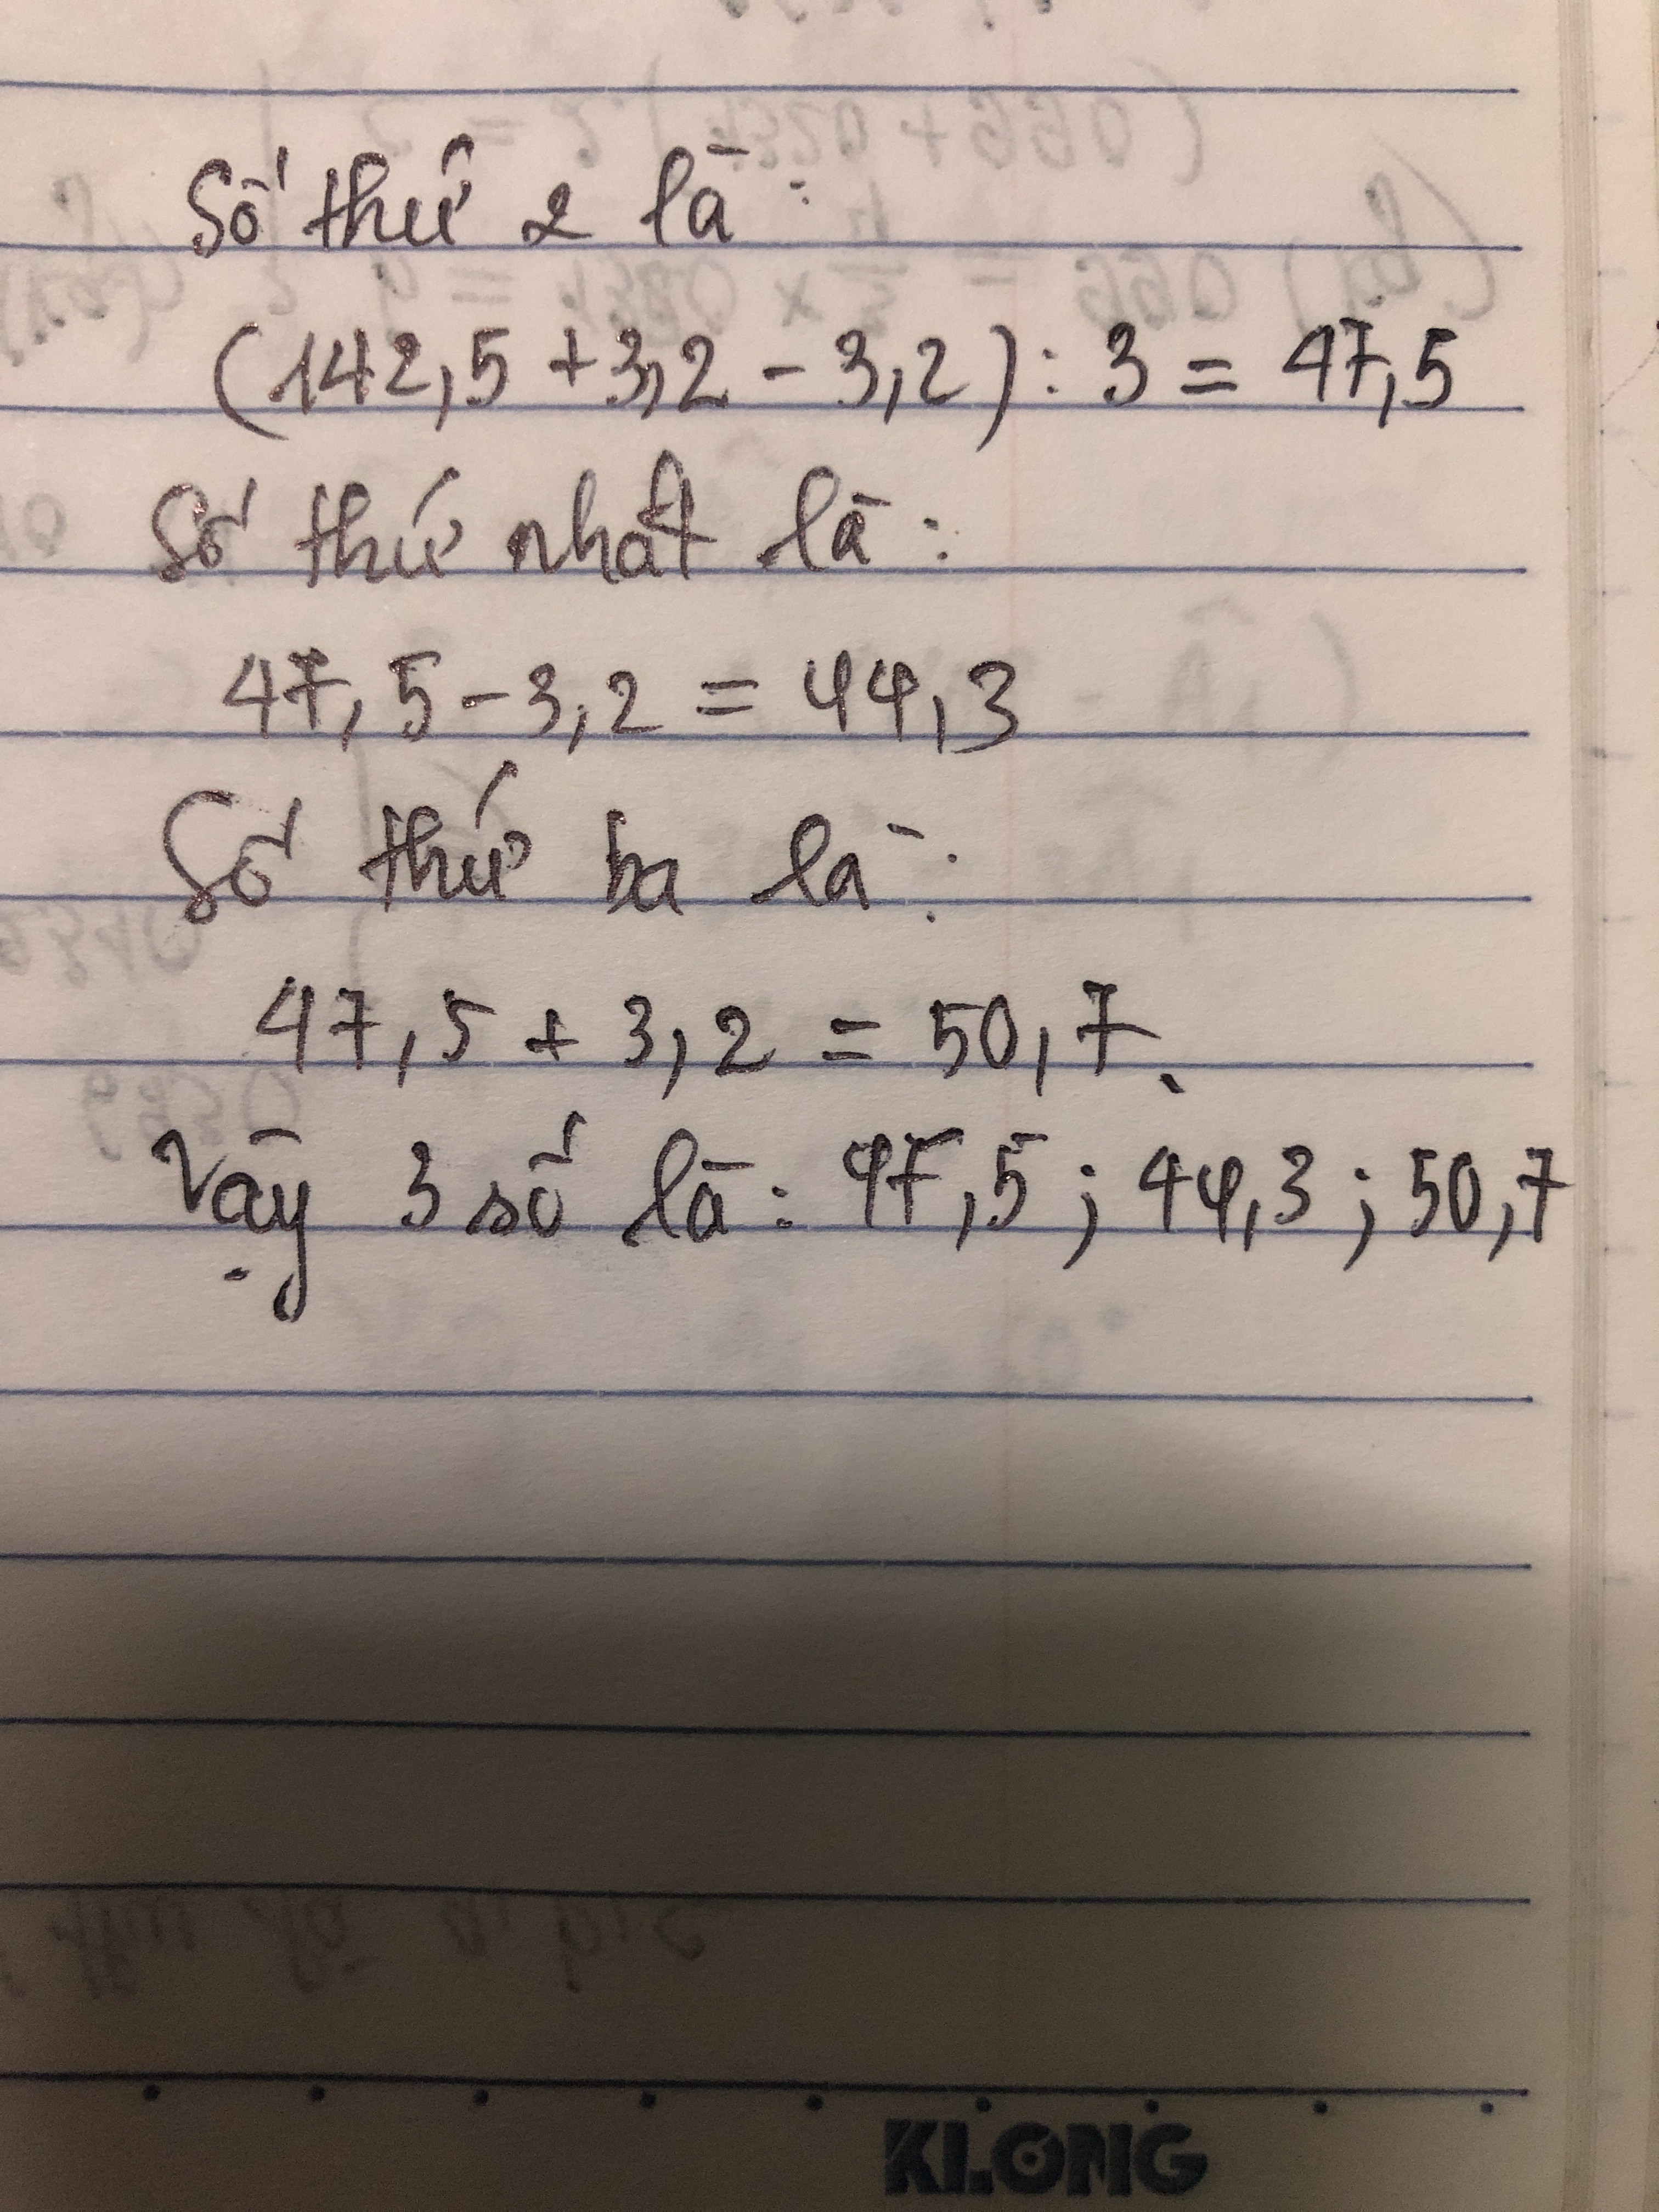 Số thứ 2 là:
(142,5 + 3,2 - 3,2) : 3 = 47,5
Số thứ nhất là:
47,5 - 3,2 = 44,3
Số thứ ba là:
47,5 + 3,2 = 50,7.
Vậy 3 số là: 47,5; 44,3; 50,7
KLONG